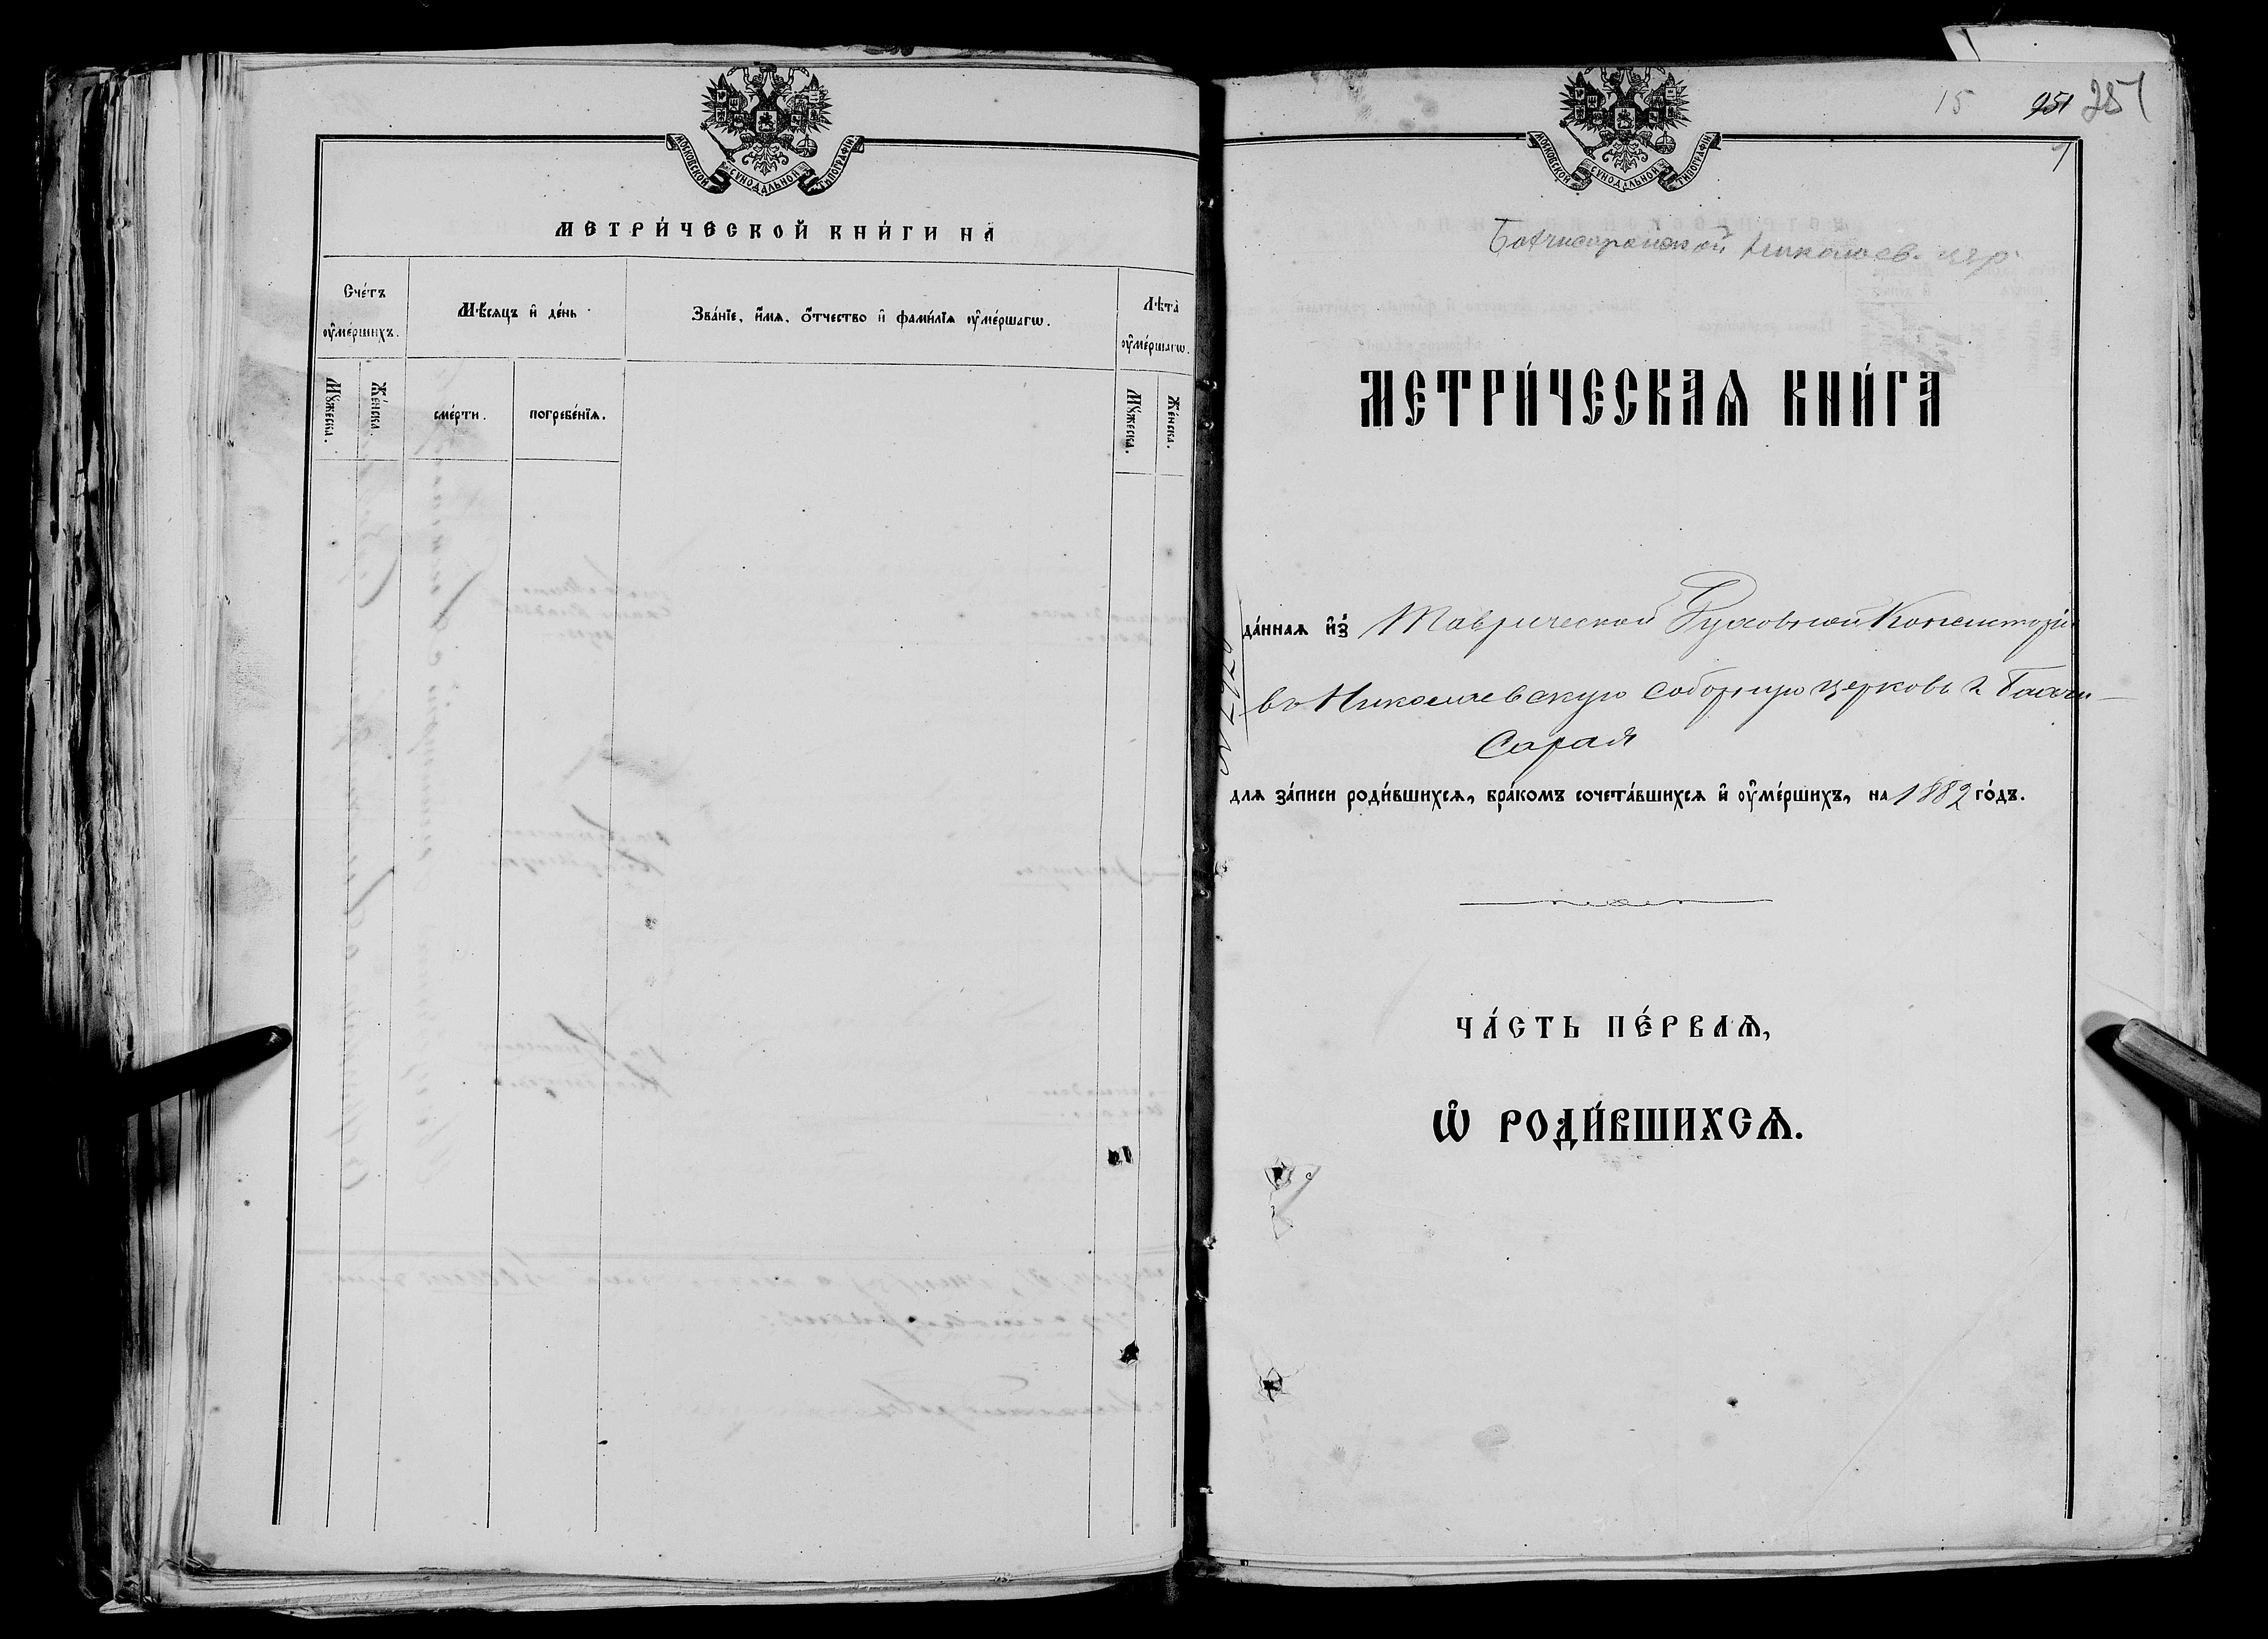 МОСКОВСКОЙ СѴНОДАЛЬНОЙ ТИПОГРАФІИ
МЕТРИ́ЧЕСКОЙ КНИ́ГИ НА
Сче́тъ ᲂу҆ме́ршихъ.
Мѣ́сяцъ и҆ де́нь
Зва́нїе, и҆́мѧ, ѻ҆́тчество и҆ фами́лїѧ ᲂу҆ме́ршагѡ.
Лѣ́та ᲂу҆ме́ршагѡ.
Мꙋ́жеска.
Же́нска.
сме́рти.
погребе́нїѧ.
Мꙋ́жеска.
Же́нска.
15 251 251
МОСКОВСКОЙ СѴНОДАЛЬНОЙ ТИПОГРАФІИ
1
Бахчисарайской Николаев. цер.
МЕТРИ́ЧЕСКАѦ КНИ́ГА
да́нная и҆з̾ Таврической Духовной Консисторіи
въ Николаевскую Соборную церковь г. Бахчи-
Сарая
для за́писи роди́вшихсѧ, бра́комъ сочета́вшихсѧ и҆ ᲂу҆ме́ршихъ, на 1882 го́дъ.
ЧА́СТЬ ПЕ́РВАѦ,
Ѡ҆ РОДИ́ВШИХСѦ.